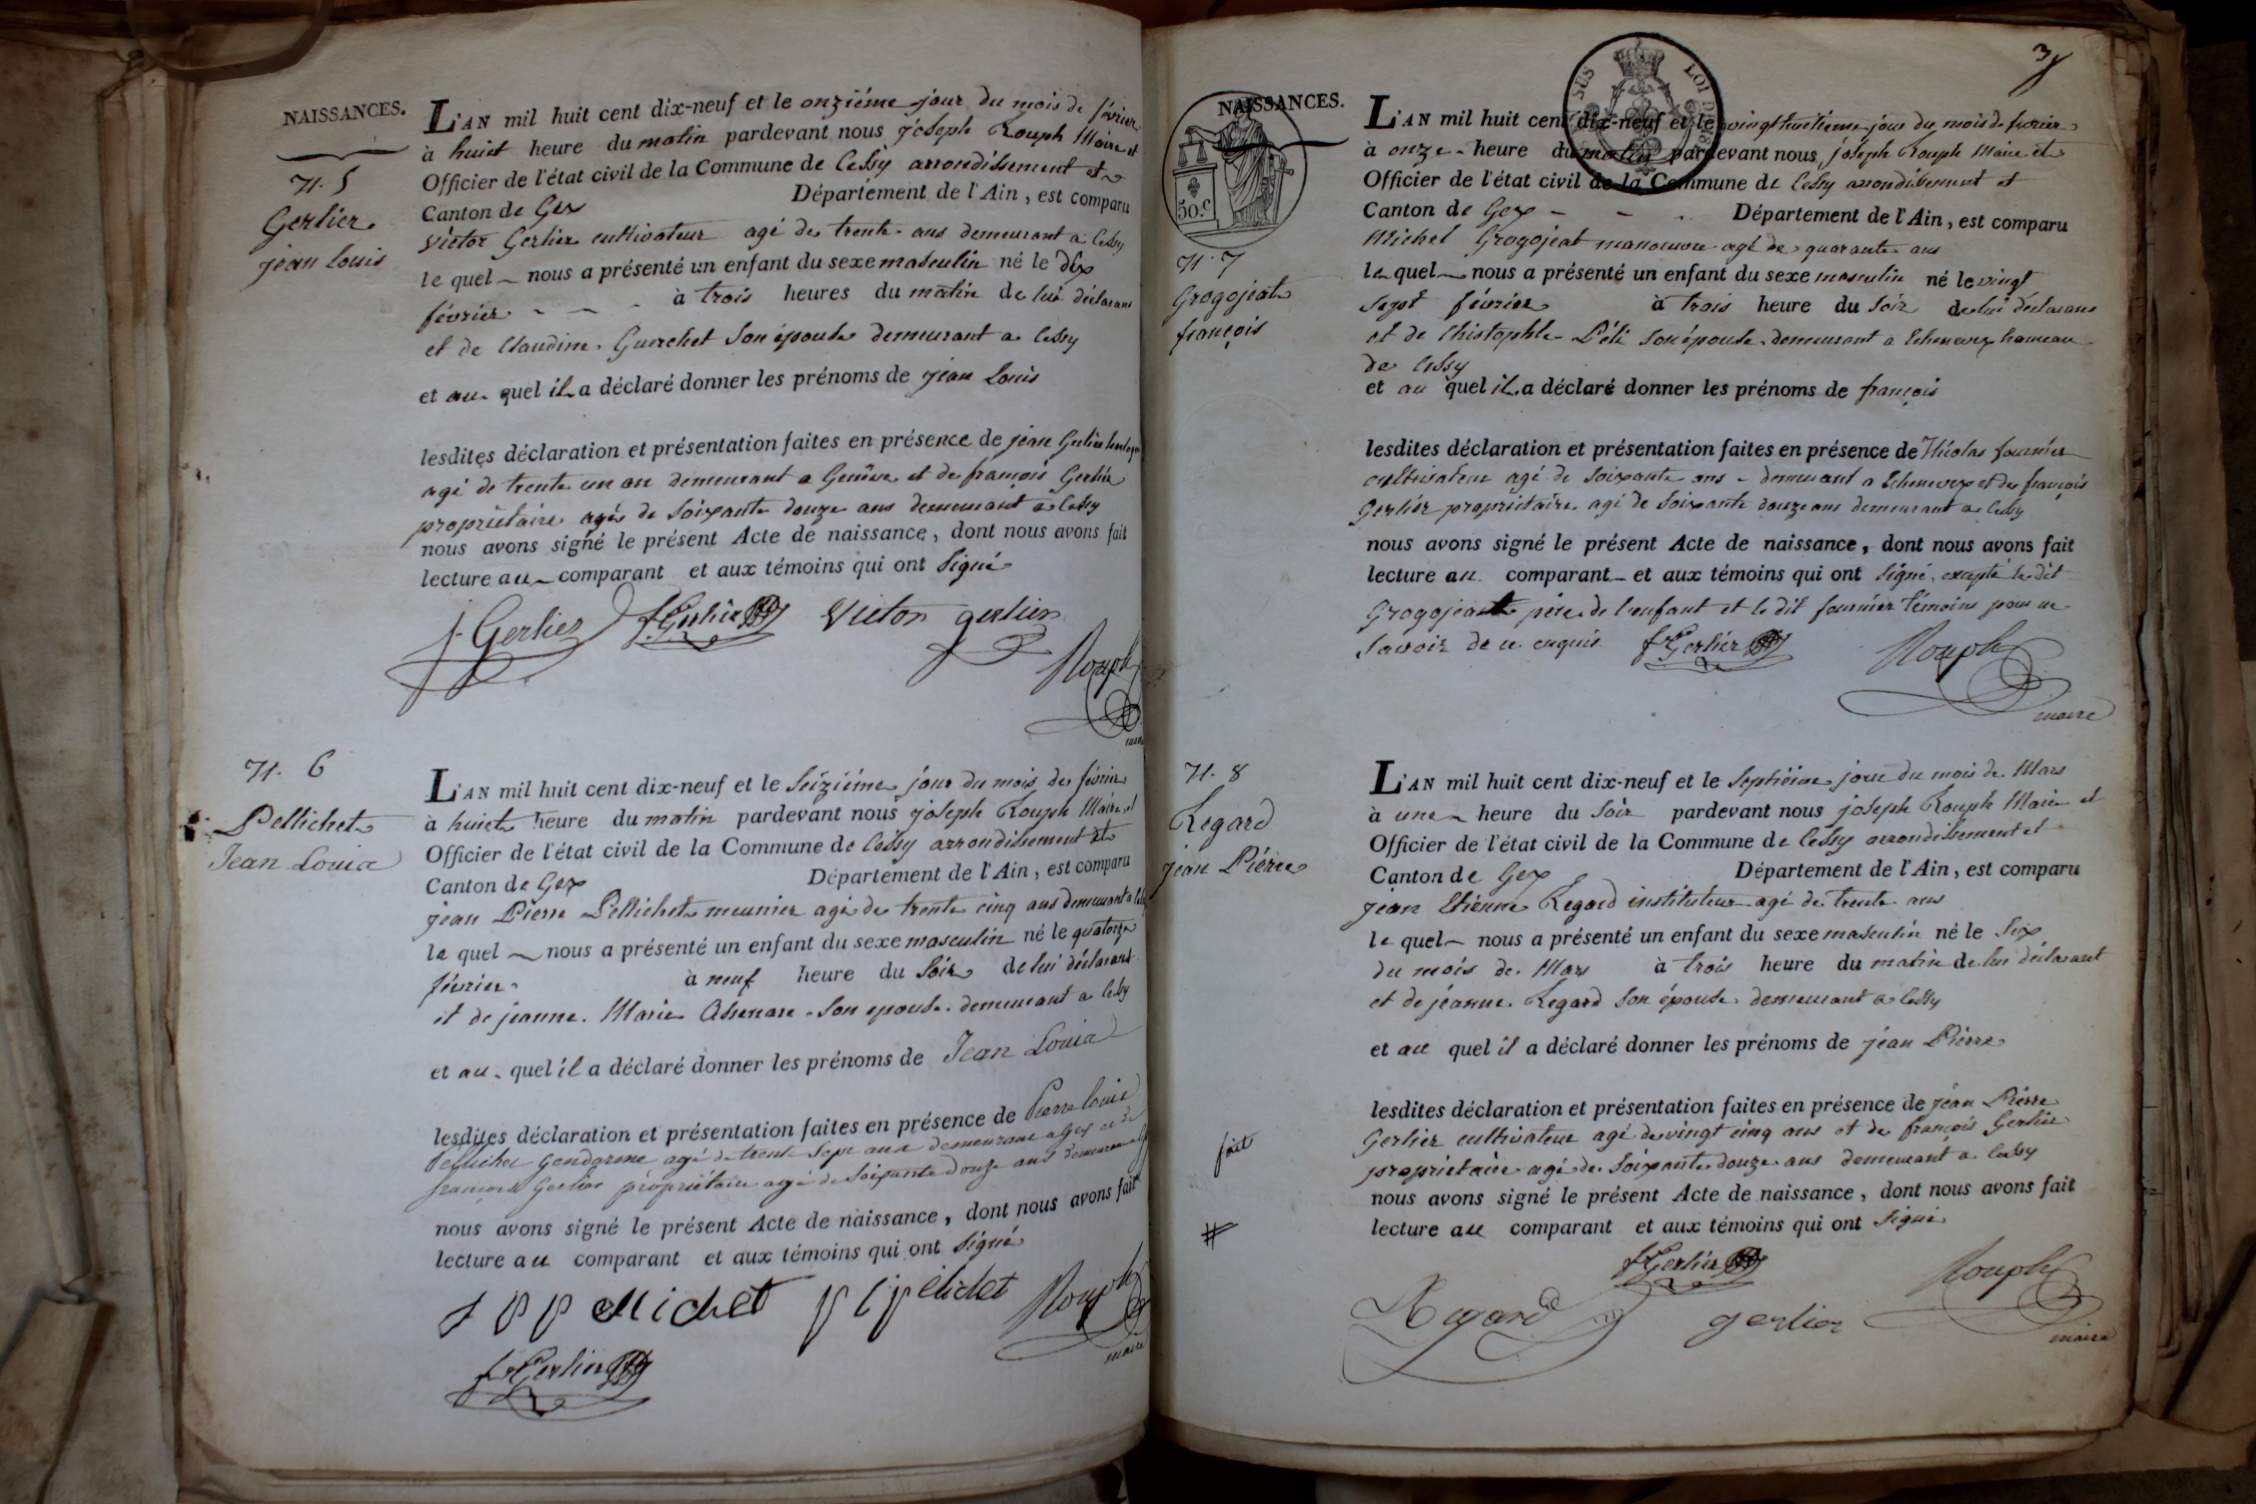 NAISSANCES.
N. 5
Gerlier
jean Louis
L'AN mil huit cent dix-neuf et le onzième jour du mois de février
à huict heure du matin pardevant nous joseph Rouph Maire et
Officier de l'état civil de la Commune de Cessy arrondissement et
Canton de Gex Département de l'Ain, est comparu
Victor Gerlier cultivateur agé de trente ans demeurant a Cessy
le quel nous a présenté un enfant du sexe masculin né le dix
février à trois heures du matin de lui déclarant
et de Claudine Guerchet son épouse demeurant a Cessy
et au quel il a déclaré donner les prénoms de jean Louis
lesdites déclaration et présentation faites en présence de jean Gerlier
agé de trente un an demeurant a Genève et de françois Gerlier
propriétaire agés de soixante douze ans demeurant a Cessy
nous avons signé le présent Acte de naissance, dont nous avons fait
lecture au comparant et aux témoins qui ont signé
j. Gerlier f Gerlier Victor gerlier
Rouph
maire
N. 6
Pellichet
Jean Louis
L'AN mil huit cent dix-neuf et le seizième jour du mois de février
à huict heure du matin pardevant nous joseph Rouph Maire et
Officier de l'état civil de la Commune de Cessy arrondissement et
Canton de Gex Département de l'Ain, est comparu
jean Pierre Pellichet meunier agé de trente cinq ans demeurant a
le quel nous a présenté un enfant du sexe masculin né le quatorze
février à neuf heure du soir de lui déclarant
et de jeanne Marie son epouse demeurant a Cessy
et au quel il a déclaré donner les prénoms de Jean Louis
lesdites déclaration et présentation faites en présence de Pierre Louis
Pellichet Gendarme agé de trente sept ans demeurant a Gex et de
françois Gerlier propriétaire agé de soixante douze ans demeurant
nous avons signé le présent Acte de naissance, dont nous avons fait
lecture au comparant et aux témoins qui ont signé
Rouph
f Gerlier
maire
3
SUS LOI
50.c
NAISSANCES.
N. 7
Grogojeat
françois
L'AN mil huit cent dix-neuf et le vingthuitieme jour du mois de fevrier
à onze heure du matin pardevant nous joseph Rouph Maire et
Officier de l'état civil de la Commune de Cessy arrondissement et
Canton de Gex Département de l'Ain, est comparu
Michel Grogojeat manoeuvre agé de quarante ans
le quel nous a présenté un enfant du sexe masculin né le vingt
sept février à trois heure du soir de lui déclarant
et de son épouse demeurant a Echenevex hameau
de Cessy
et au quel il a déclaré donner les prénoms de françois
lesdites déclaration et présentation faites en présence de Nicolas fournier
cultivateur agé de soixante ans demeurant a Echenevex et de françois
Gerlier propriétaire agé de soixante douze ans demeurant a Cessy
nous avons signé le présent Acte de naissance, dont nous avons fait
lecture au comparant et aux témoins qui ont signé, excepté le dit
Grogojeat père de l'enfant et le dit fournier témoins pour ne
savoir de ce enquis f Gerlier Rouph
maire
N. 8
Regard
jean Piérre
L'AN mil huit cent dix-neuf et le septiéme jour du mois de Mars
à une heure du soir pardevant nous joseph Rouph Maire et
Officier de l'état civil de la Commune de Cessy arrondissement et
Canton de Gex Département de l'Ain, est comparu
jean Etienne Regard instituteur agé de trente ans
le quel nous a présenté un enfant du sexe masculin né le six
du mois de Mars à trois heure du matin de lui déclarant
et de jeanne Regard son épouse demeurant a Cessy
et au quel il a déclaré donner les prénoms de jean Pierre
lesdites déclaration et présentation faites en présence de jean Pierre
Gerlier cultivateur agé de vingt cinq ans et de françois Gerlier
fait
propriétaire agé de soixante douze ans demeurant a Cessy
nous avons signé le présent Acte de naissance, dont nous avons fait
lecture au comparant et aux témoins qui ont signé
#
f Gerlier Rouph
Regard gerlier
maire